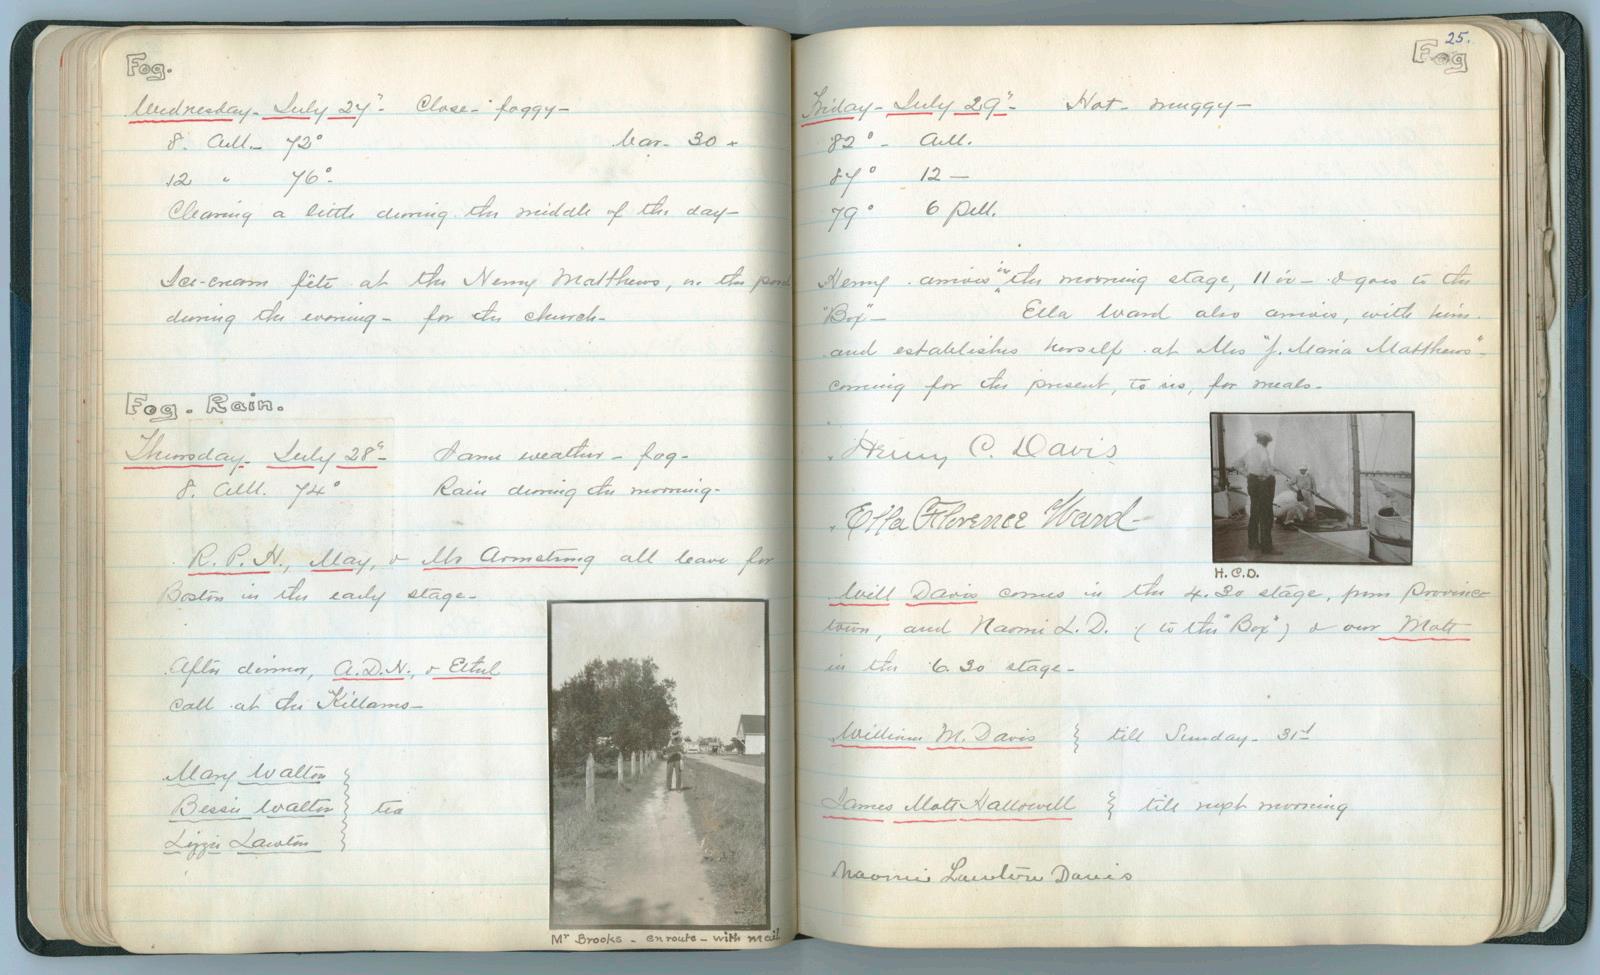 Fog.
Wednesday - July 27" - Close - foggy -
8. A.M. - 72°  bar - 30 +
12 " 76° -
Clearing a little during the middle of the day -
Ice-cream fête at the Henry Matthews, in the
during the evening - for the church -
Fog. Rain.
Thursday - July 28" - Same weather - fog -
8. A.M. 74°  Rain during the morning -
R. P. H., May, & Mr Armstrong all leave for
Boston in the early stage -
After dinner, A.D.N., & Ethel
call at the Killams -
Mary Walton
Bessie Walton } tea
Lizzie Lawton
Mr Brooks - en route - with mail
25.
Fog
Friday - July 29" - Hot - muggy -
82° - A.M.
84° 12 -
79° 6 P.M.
Henry arrives in the morning stage, 11 - & goes to the
"Box" - Ella Ward also arrives, with him
and establishes herself at Mrs "J. Maria Matthews" -
coming for the present, to us, for meals -
Henry C. Davis
Ella Florence Ward -
H.C.D.
Will Davis comes in the 4.30 stage, from Province-
town, and Naomi L. D. (to the "Box") & our Mott
in the 6.30 stage -
William M. Davis } till Sunday - 31st
James Mott Hallowell } till next morning
Naomi Lawton Davis